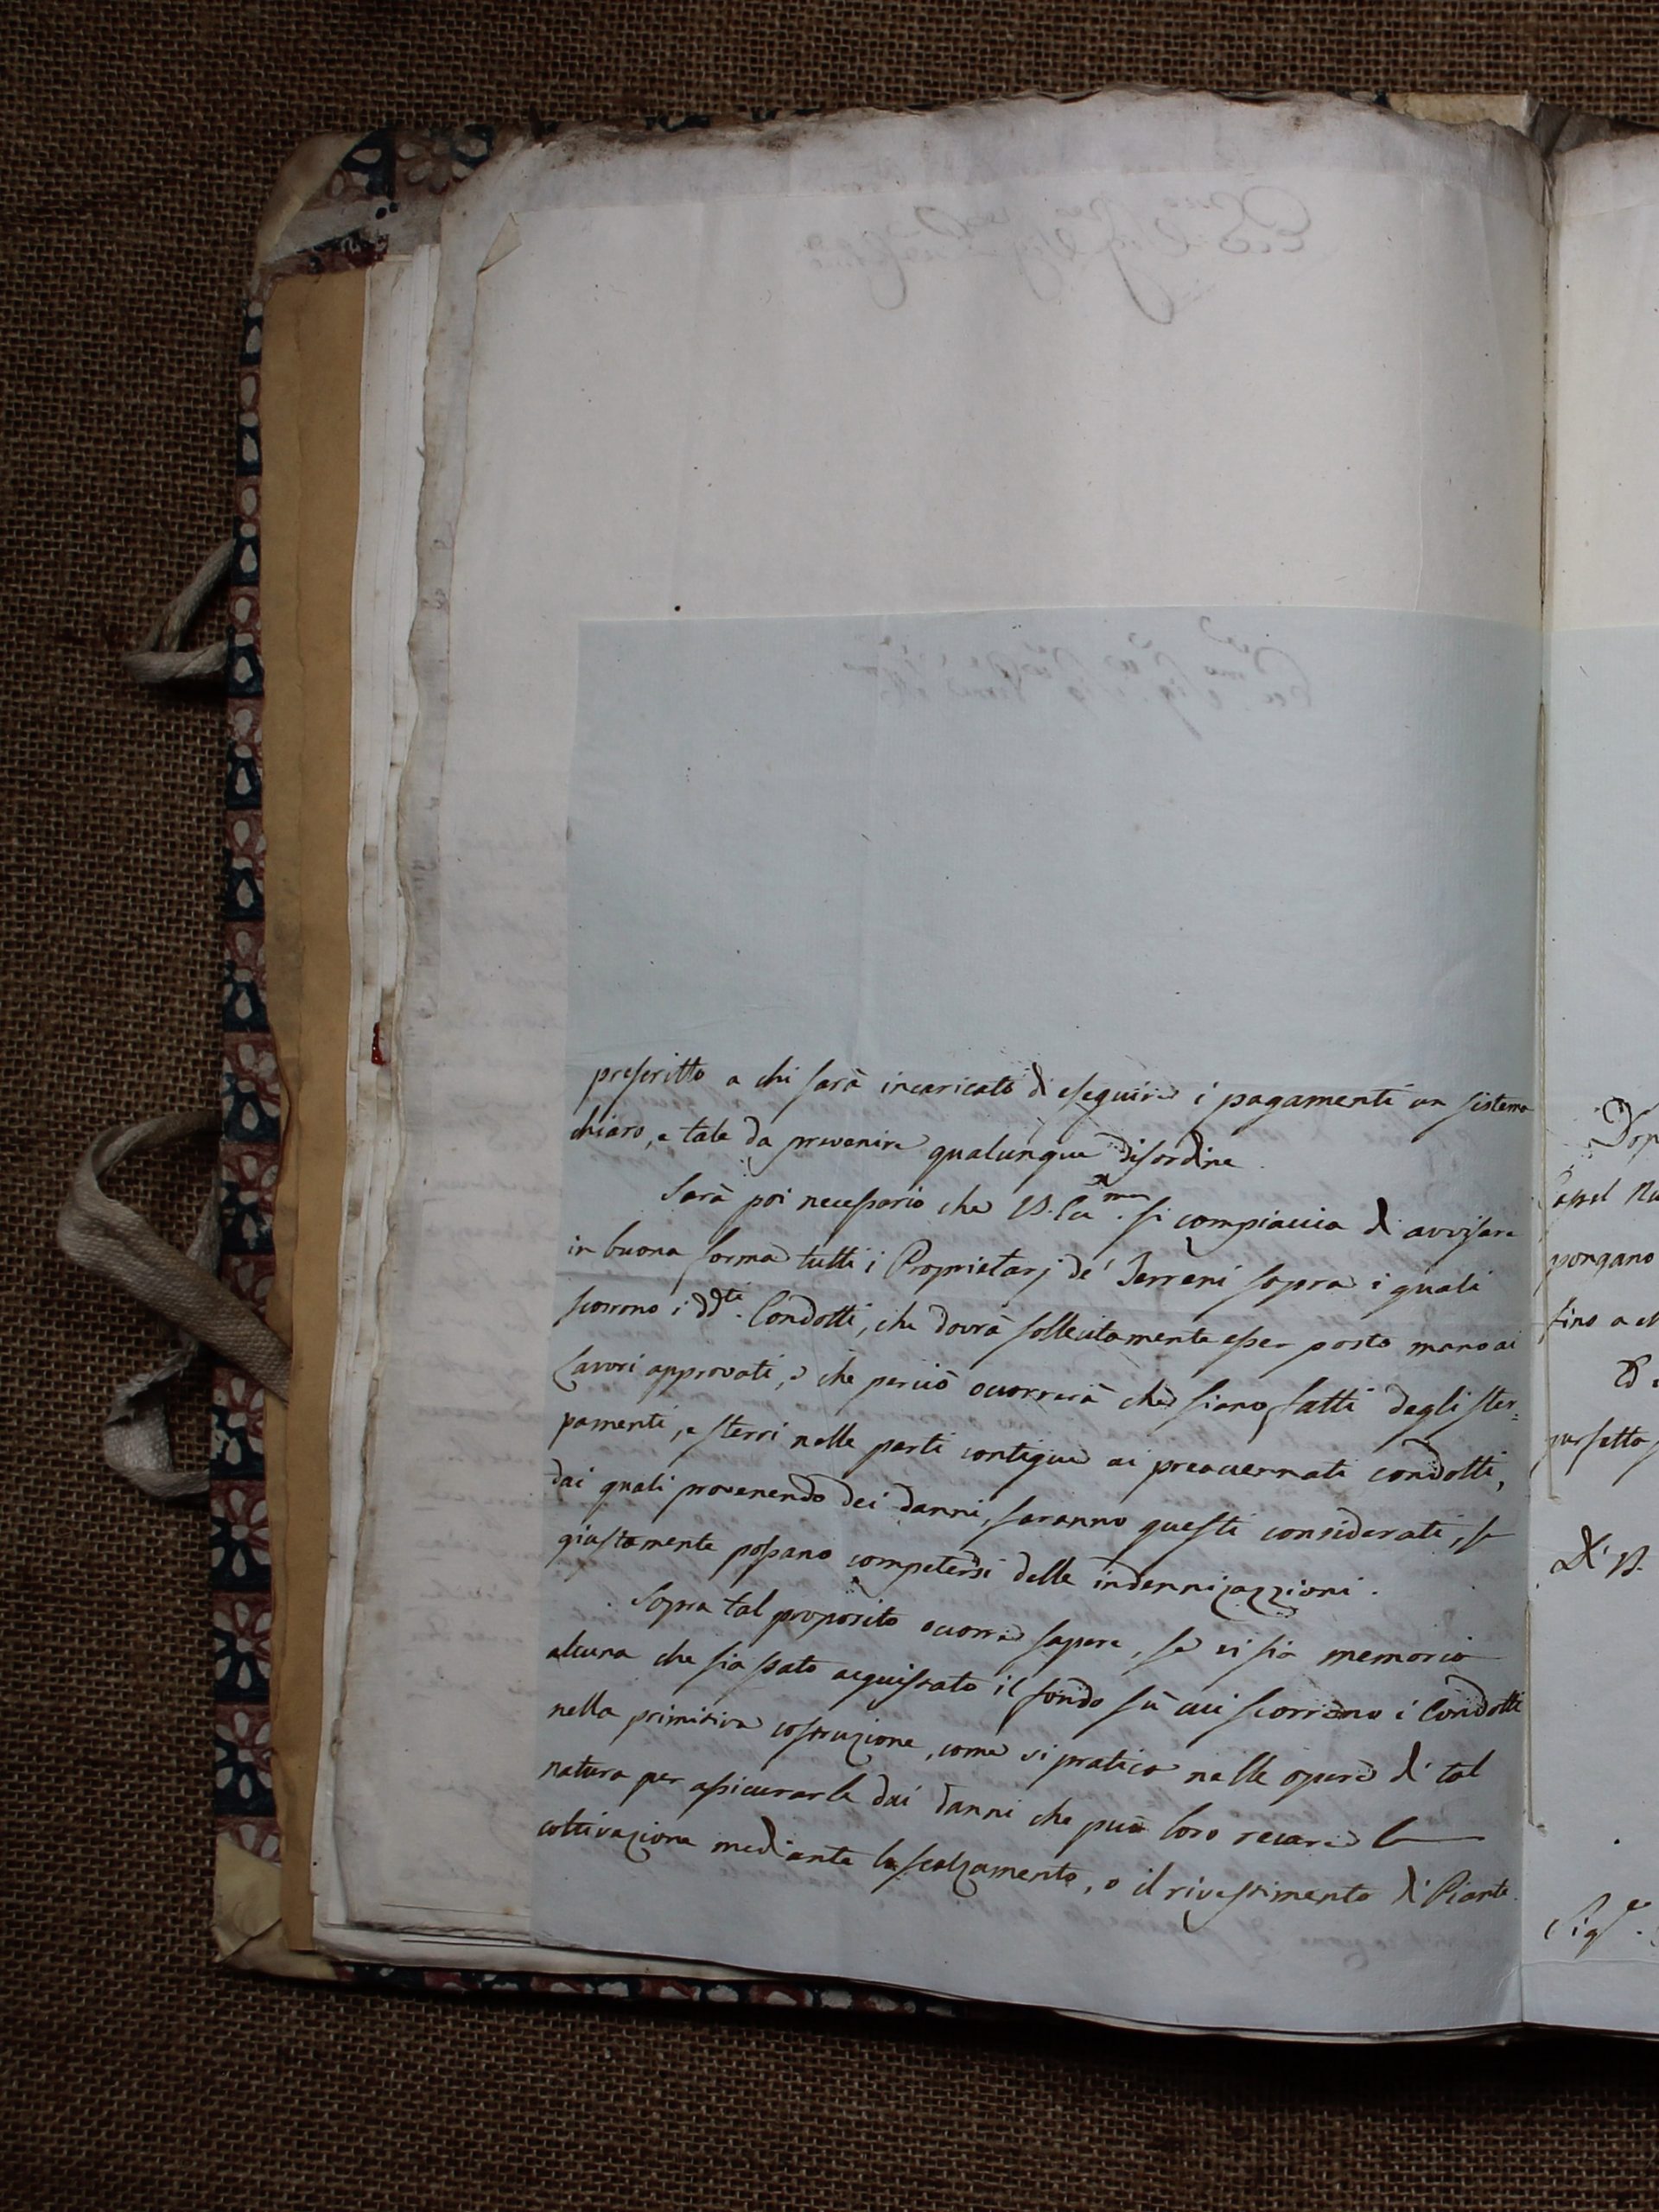 prescritto a chi sarà incaricato di eseguire i pagamenti un sistema
chiaro, e tale da prevenire qualunque disordine.
Sarà poi necessario che V.S. Ill.ma si compiaccia di avvisare
in buona forma tutti i Proprietarj de' Terreni sopra i quali
scorrono i dd.ti Condotti, che dovrà sollecitamente esser posto mano ai
lavori approvati, e che perciò occorrerà che siano fatti degli ster=
pamenti, e sterri nelle parti contigue ai preaccennati condotti,
dai quali provenendo dei danni, saranno questi considerati, se
giustamente possano competersi delle indennizazzioni.
Sopra tal proposito occorre sapere, se vi sia memoria
alcuna che sia stato acquistato il fondo su cui scorrono i Condotti
nella primitiva costruzione, come si pratica nelle opere di tal
natura per assicurarle dai danni che può loro recare la
coltivazione mediante lo scalzamento, o il rivestimento di Piante.
Dop
pongano
fino a ch
Ed
perfetto
Di V.
Sig.e